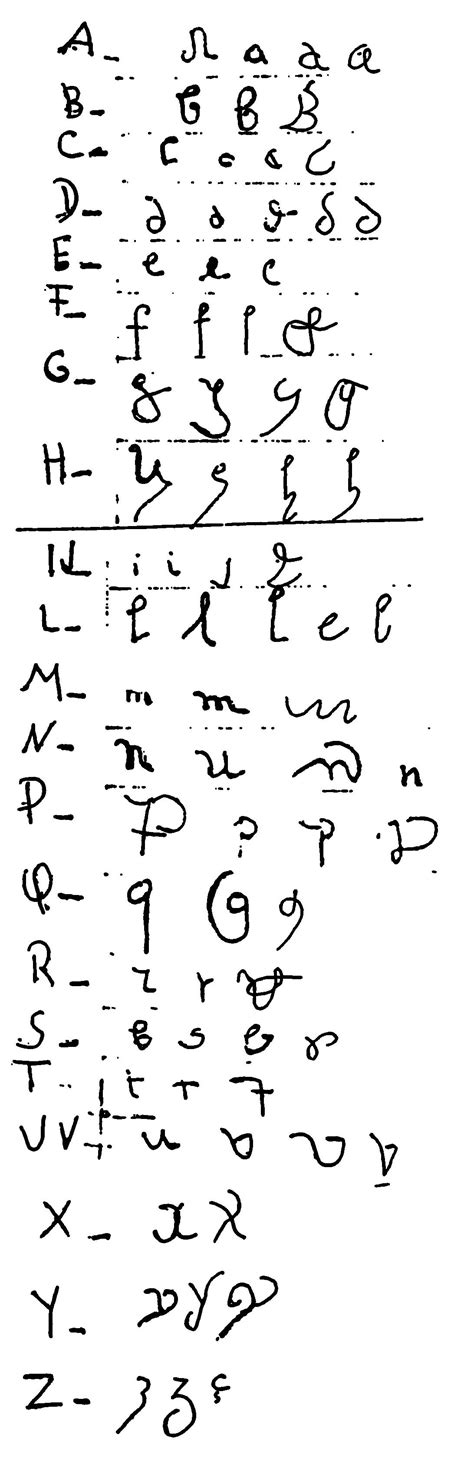 A- a a a a
B- b b B
C- c c c c
D- d d d d d
E- e e e
F- f f f f
G- g g g g
H- h h h h
IJ i i j
L- l l l e l
M- m m m
N- n n n n
P- p p p p
Q- q q q
R- r r r
S- s s s s
T- t t t
UV- u v v v
X- x x
Y- y y y
Z- z z ç